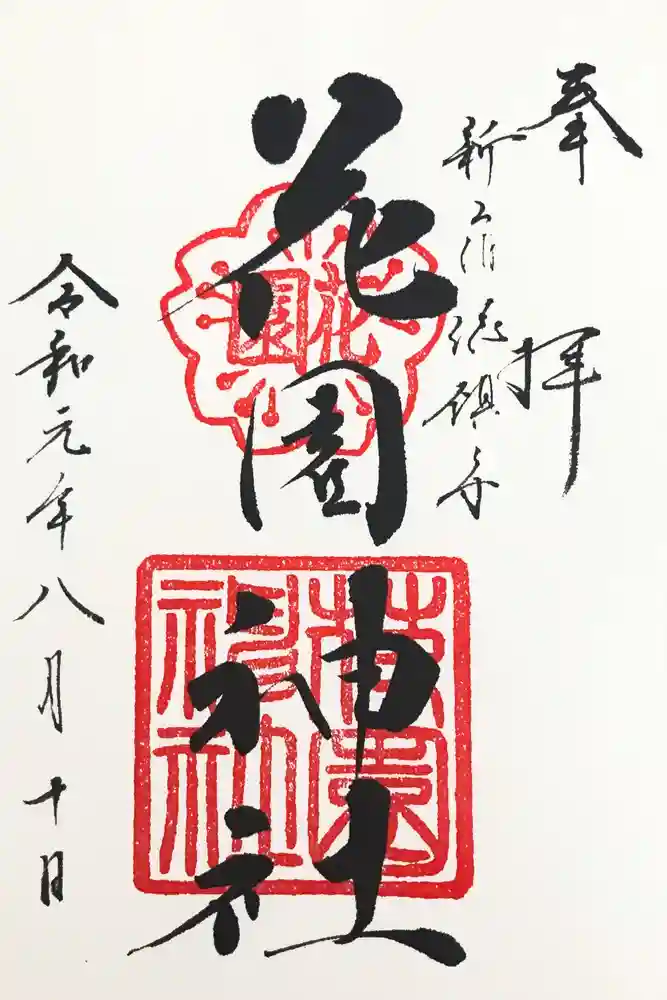 奉拝
新宿総鎮守
花園神社
花園
花園神社
令和元年八月十日